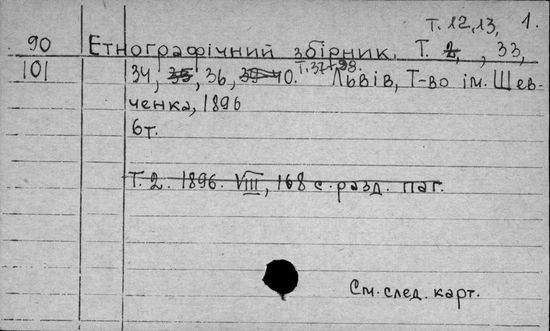 т. 12, 13, 1.
90 Етнографічний збірник. Т. 2, , 33,
101 34, 35, 36, 39-40. Т. 37-38. Львів, Т-во ім. Шев-
ченка, 1896
6т.
Т. 2. 1896. VIII, 168 с. разд. паг.
См. след. карт.